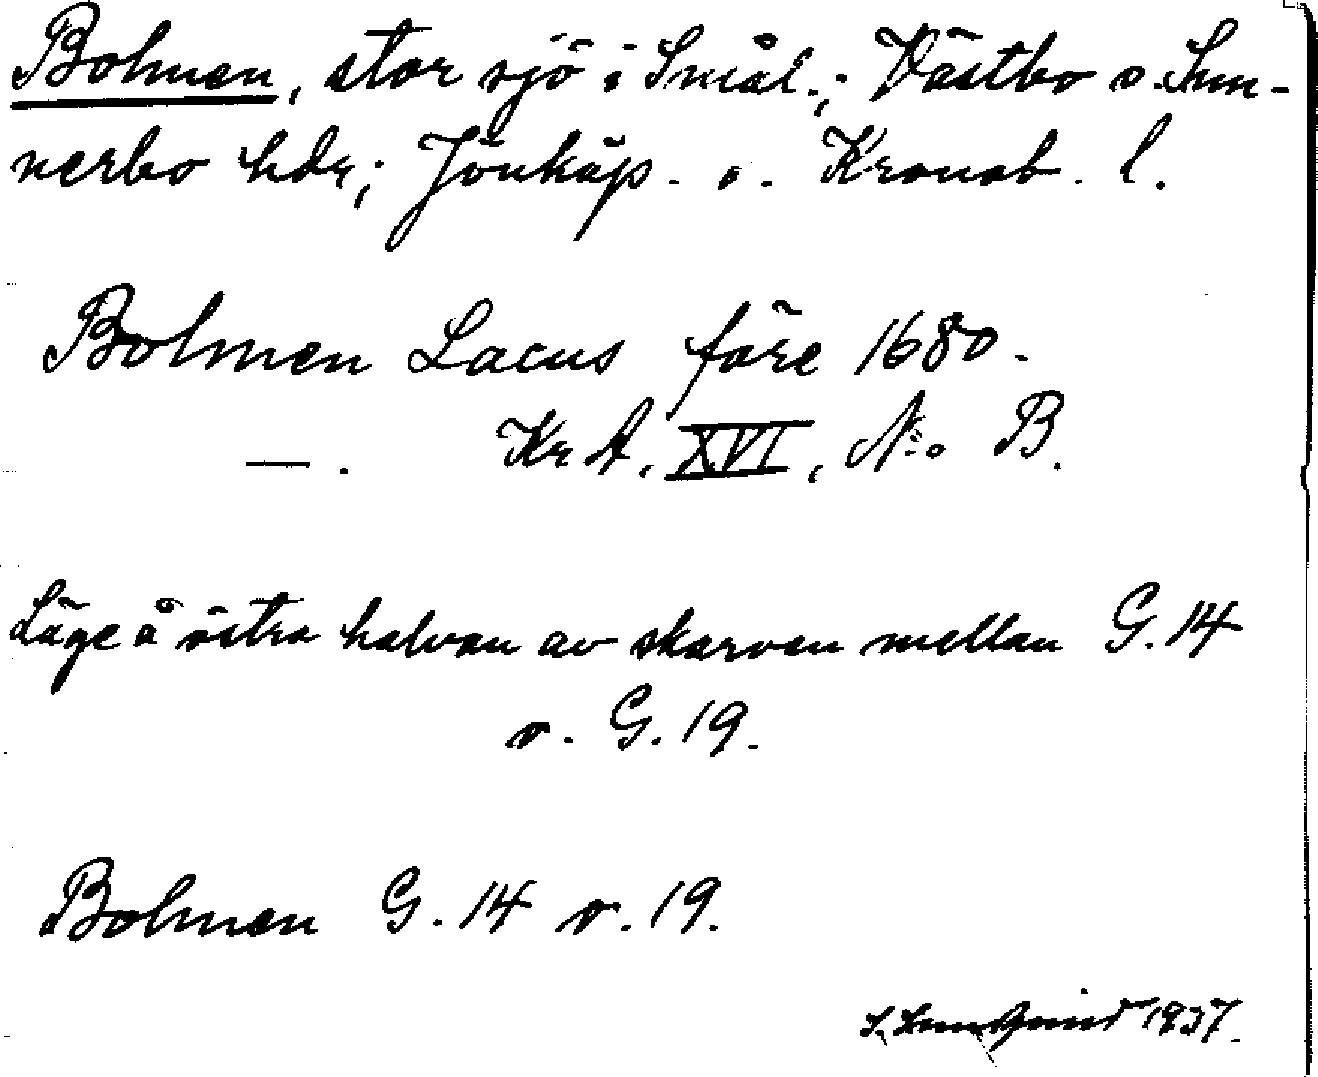 Bolmen, stor sjö i Smål.; Västbo o. Sun-
nerbo hdr; Jönköp. o. Kronob. l.
Bolmen Lacus före 1680.
—. KrA. XVI, No B.
Läge å östra halvan av skarven mellan G. 14
o. G. 19.
Bolmen G. 14 o. 19.
1937.